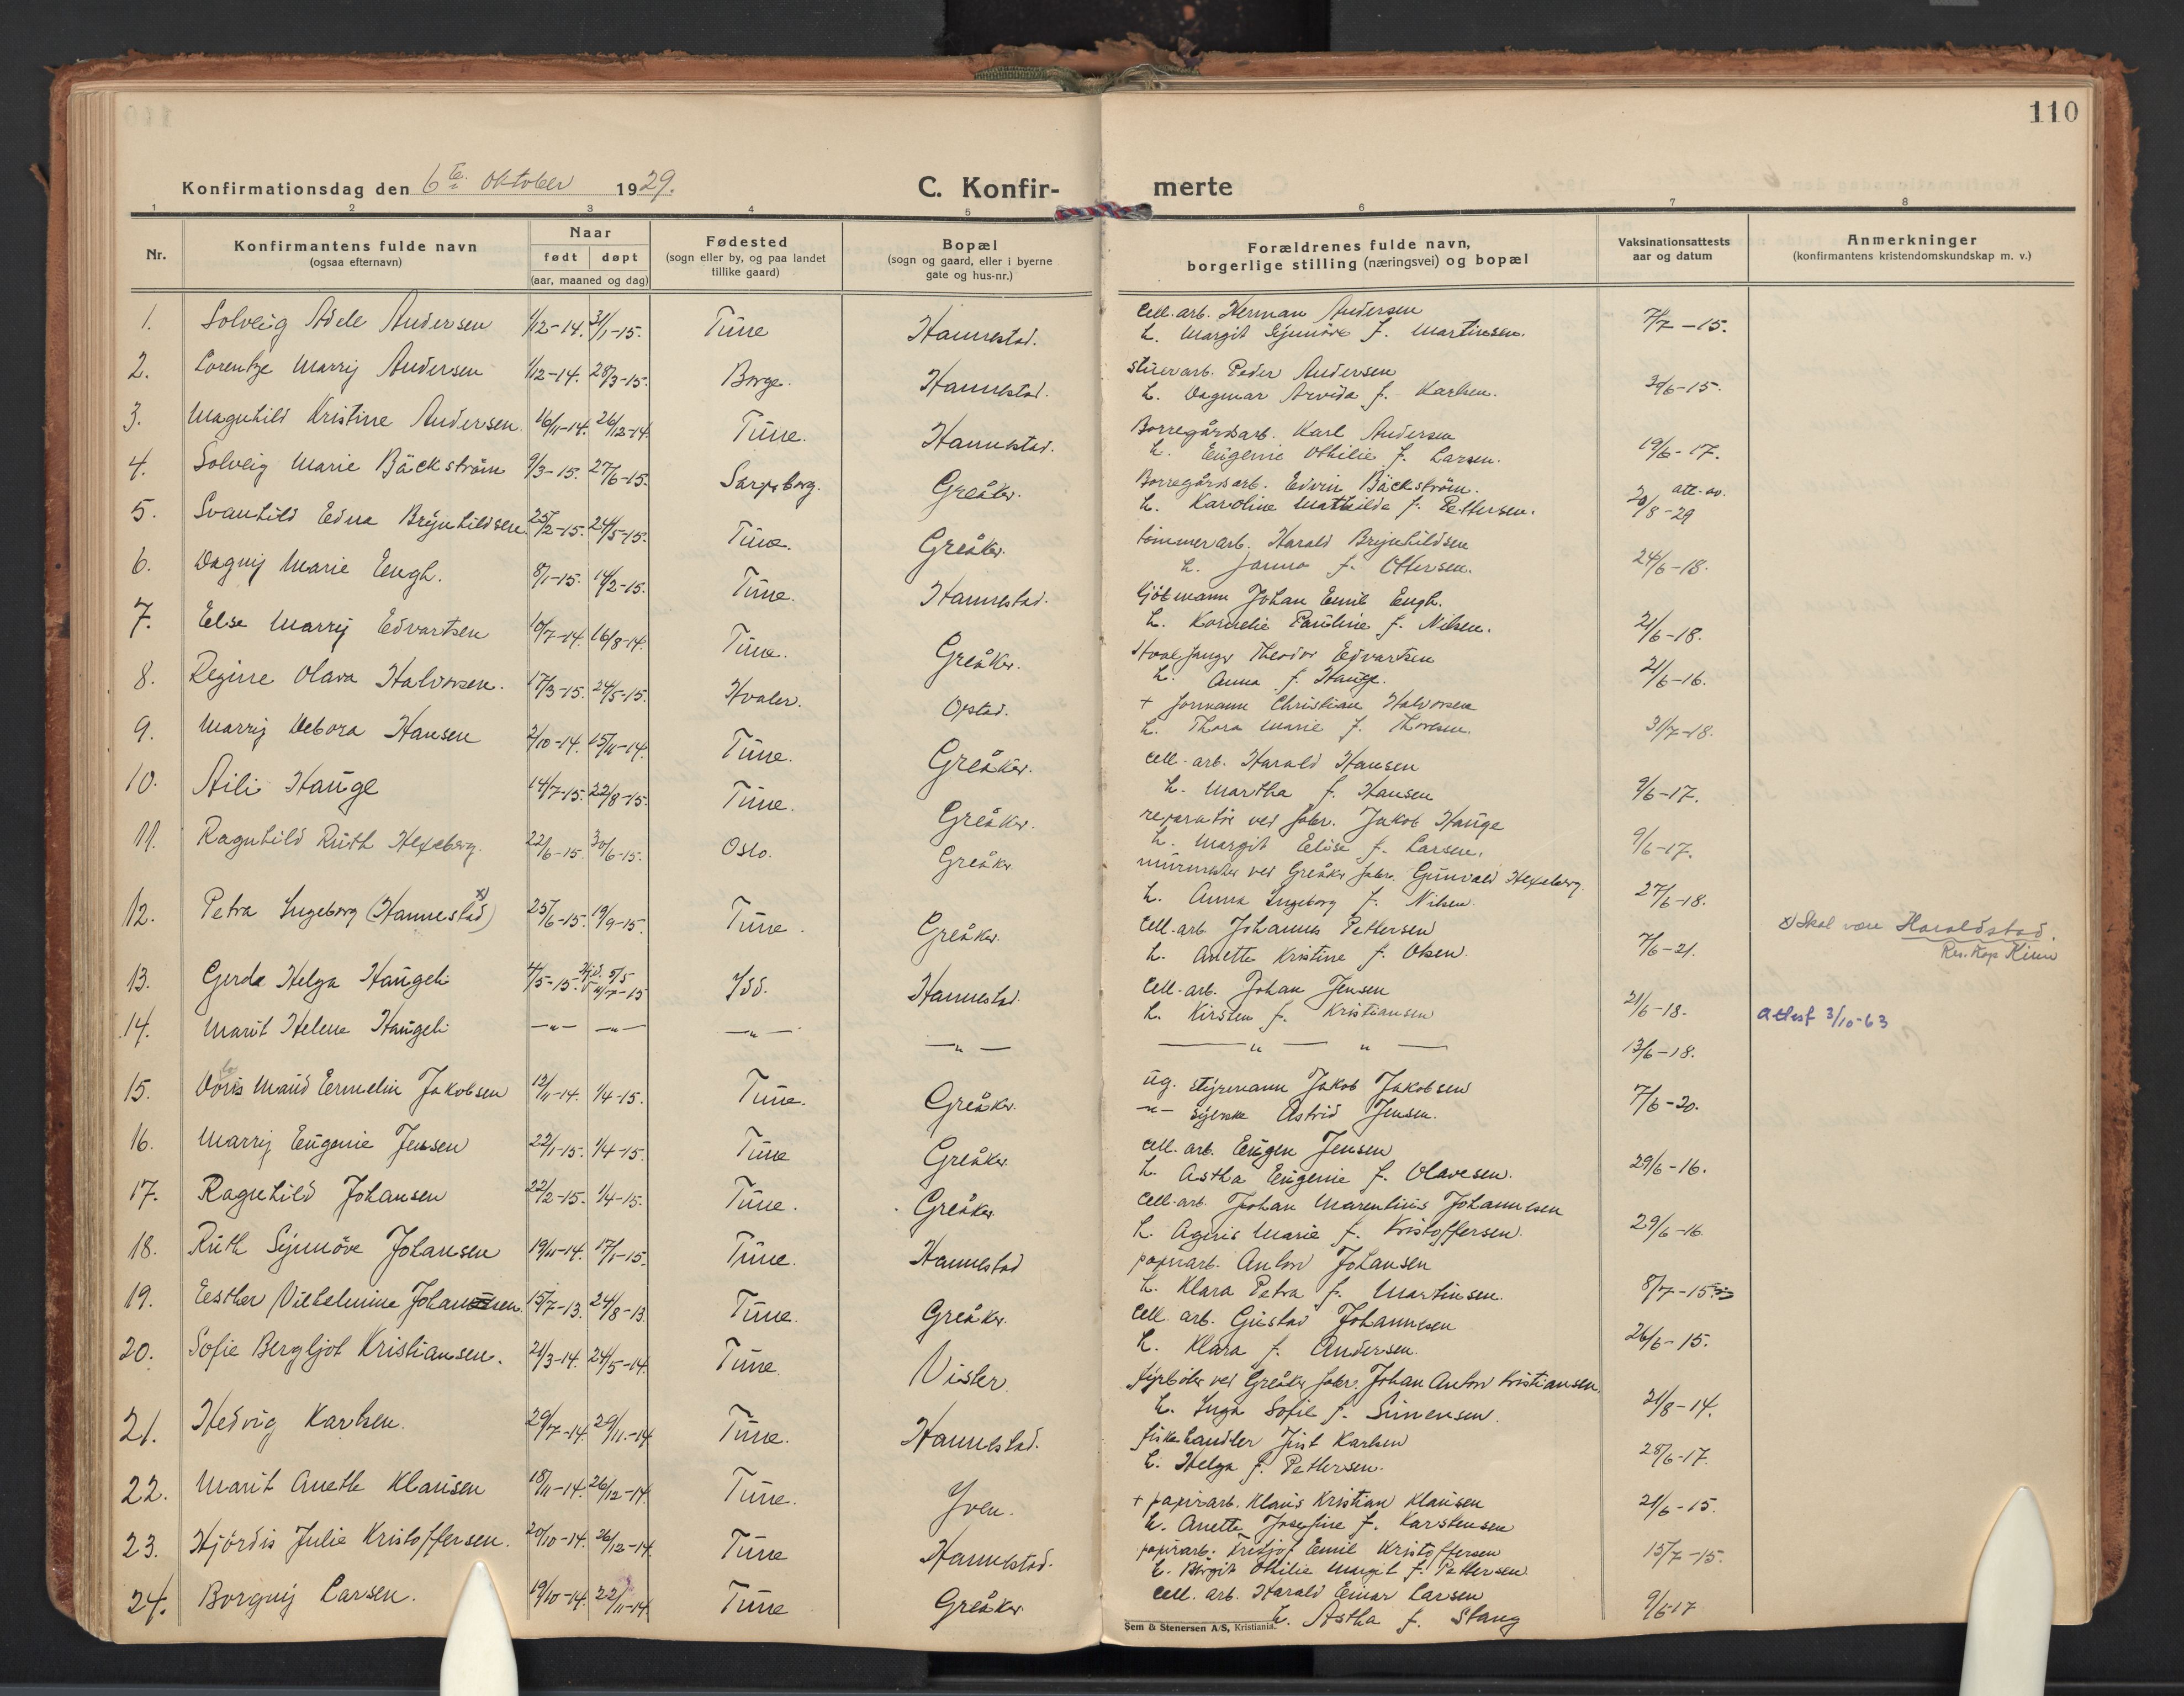 110
Konfirmationsdag den 6te oktober 1929. C. Konfir- merte
1 2 3 4 5 6 7 8
Nr.
Konfirmantens fulde navn
(ogsaa efternavn)
Naar
født døpt
(aar, maaned og dag)
Fødested
(sogn eller by, og paa landet
tillike gaard)
Bopæl
(sogn og gaard, eller i byerne
gate og hus-nr.)
Forældrenes fulde navn,
borgerlige stilling (næringsvei) og bopæl
Vaksinationsattests
aar og datum
Anmerkninger
(konfirmantens kristendomskundskap m. v.)
1. Solveig Adele Andersen 1/12-14. 31/1-15. Tune Hannestad. Cell. arb. Herman Andersen 7/7-15.
h. Margit Synnöve f. Martinsen.
2. Lorentze Marry Andersen 1/12-14. 28/3-15. Borge. Hannestad. stuerarb. Peder Andersen 30/6-15.
h. Dagmar Arvida f. Karlsen.
3. Magnhild Kristine Andersen. 16/11-14. 26/12-14. Tune. Hannestad. Borregårdsarb. Karl Andersen 19/6-17.
h. Eugenie Othilie f. Larsen.
4. Solveig Marie Bäckström 9/3-15. 27/6-15. Sarpsborg. Greåker. Borregårdsarb. Edvin Bäckström. att. av. 20/8-29
h. Karoline Mathilde f. Pettersen.
5. Svanhild Edna Brynhildsen 25/2-15. 24/5-15. Tune. Greåker. tömmerarb. Harald Brynhildsen 24/6-18.
h. Janna f. Ottersen.
6. Dagny Marie Engh. 8/1-15. 14/2-15. Tune. Hannestad. kjötmann Johan Emil Engh. 21/6-18.
h. Kornelie Pauline f. Nilsen.
7. Else Marry Edvartsen 10/7-14. 16/8-14. Tune. Greåker. Hvalfanger Theodor Edvartsen 21/6-16.
h. Anna f. Hauge.
8. Regine Olava Halvorsen. 17/3-15. 24/5-15. Hvaler. Opstad. + formann Christian Halvorsen 31/7-18.
h. Thora Marie f. Thoresen.
9. Marry Debora Hansen 2/10-14. 15/11-14. Tune. Greåker. cell. arb. Harald Hansen 9/6-17.
h. Martha f. Hansen
10. Aili Hauge 14/7-15. 22/8-15. Tune. Greåker. reparatör ved fabr. Jakob Hauge 9/6-17.
h. Margit Elise f. Larsen.
11. Ragnhild Ruth Hexeberg. 22/6-15. 30/6-15. Oslo. Greåker murmester ved Greåker fabr. Gunvald Hexeberg. 27/6-18.
h. Anna Ingeborg f. Nilsen.
12. Petra Ingeborg (Hannestad) x) 25/6-15. 19/9-15. Tune. Greåker. Cell. arb. Johannes Pettersen 7/6-21. x) Skal være Haraldstad.
h. Anette Kristine f. Olsen. Res. kap. Kiran
13. Gerda Helga Haugeli 4/5-15. Hjd. 5/5 11/7-15 Idd. Hannestad. Cell. arb. Johan Jensen 21/6-18. Attest 3/10-63
h. Kirsten f. Kristiansen
14. Marit Helene Haugeli —"— —"— —"— —"— —"— " — 13/6-18.
15. Doris Maud Ermelin Jakobsen 12/11-14. 1/4-15. Tune. Greåker. ug. styrmann Jakob Jakobsen 7/6-20.
—"— syerske Astrid Jensen.
16. Marry Eugenie Jensen 22/1-15. 1/4-15. Tune Greåker. cell. arb. Eugen Jensen 29/6-16.
h. Astha Eugenie f. Olavesen.
17. Ragnhild Johansen 22/2-15. 1/4-15. Tune. Greåker. Cell. arb. Johan Marentinius Johannesen 29/6-16.
h. Agnis Marie f. Kristoffersen.
18. Ruth Synnöve Johansen 19/11-14. 17/1-15. Tune. Hannestad papirarb. Anton Johansen 8/7-15
h. Klara Petra f. Martinsen.
19. Esther Vilhelmine Johansen. 15/7-13. 24/8-13. Tune. Greåker. Cell. arb. Gustav Johannesen 26/6-15.
h. Klara f. Andersen.
20. Sofie Bergljot Kristiansen. 21/3-14. 24/5-14. Tune. Vister. fyrböter ved Greåker fabr. Johan Anton Kristiansen. 21/8-14.
h. Inga Sofie f. Simensen.
21. Hedvig Karlsen. 29/7-14. 29/11-14. Tune. Hannestad. fiskehandler Just Karlsen 28/6-17.
h. Helga f. Pettersen.
22. Marit Anette Klausen 18/11-14. 26/12-14. Tune. Yven. + papirarb. Klaus Kristian Klausen 21/6-15.
h. Anette Josefine f. Karstensen
23. Hjördis Julie Kristoffersen. 20/10-14. 26/12-14. Tune Hannestad. papirarb. Fritjof Emil Kristoffersen 15/7-15.
h. Borgit Othilie Margit f. Pettersen.
24. Borgny Larsen. 19/10-14. 22/11-14. Tune Greåker cell. arb. Harald Einar Larsen 9/6-17
h. Astha f. Stang
Sem & Stenersen A/S, Kristiania.